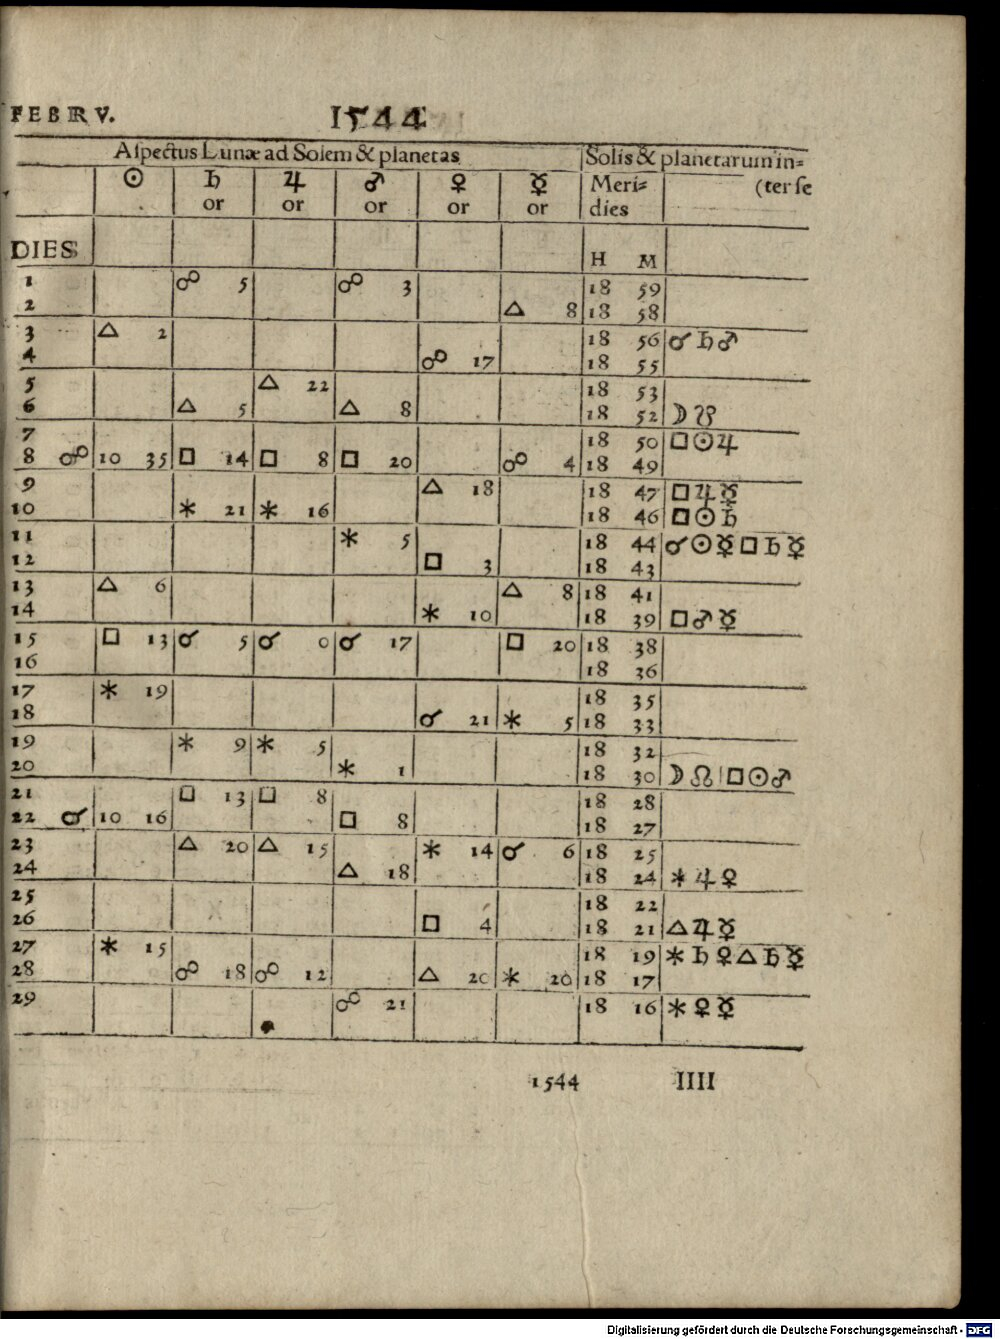 FEBRV. 1544
Aspectus Lunæ ad Solem & planetas Solis & planetarum in=
☉ ♄ ♃ ♂ ♀ ☿ Meri= (ter se
or or or or or dies
DIES H M
1 ☍ 5 ☍ 3 18 59
2 △ 8 18 58
3 △ 2 18 56 ☌ ♄ ♂
4 ☍ 17 18 55
5 △ 22 18 53
6 △ 5 △ 8 18 52 ☽ ☋
7 18 50 □ ☉ ♃
8 ☍ 10 35 □ 14 □ 8 □ 20 ☍ 4 18 49
9 △ 18 18 47 □ ♃ ☿
10 ⚹ 21 ⚹ 16 18 46 □ ☉ ♄
11 ⚹ 5 18 44 ☌ ☉ ☿ □ ♄ ☿
12 □ 3 18 43
13 △ 6 △ 8 18 41
14 ⚹ 10 18 39 □ ♂ ☿
15 □ 13 ☌ 5 ☌ 0 ☌ 17 □ 20 18 38
16 18 36
17 ⚹ 19 18 35
18 ☌ 21 ⚹ 5 18 33
19 ⚹ 9 ⚹ 5 18 32
20 ⚹ 1 18 30 ☽ ☊ | □ ☉ ♂
21 □ 13 □ 8 18 28
22 ☌ 10 16 □ 8 18 27
23 △ 20 △ 15 ⚹ 14 ☌ 6 18 25
24 △ 18 18 24 ⚹ ♃ ♀
25 18 22
26 □ 4 18 21 △ ♃ ☿
27 ⚹ 15 18 19 ⚹ ♄ ♀ △ ♄ ☿
28 ☍ 18 ☍ 12 △ 20 ⚹ 20 18 17
29 ☍ 21 18 16 ⚹ ♀ ☿
1544 IIII
Digitalisierung gefördert durch die Deutsche Forschungsgemeinschaft - DFG